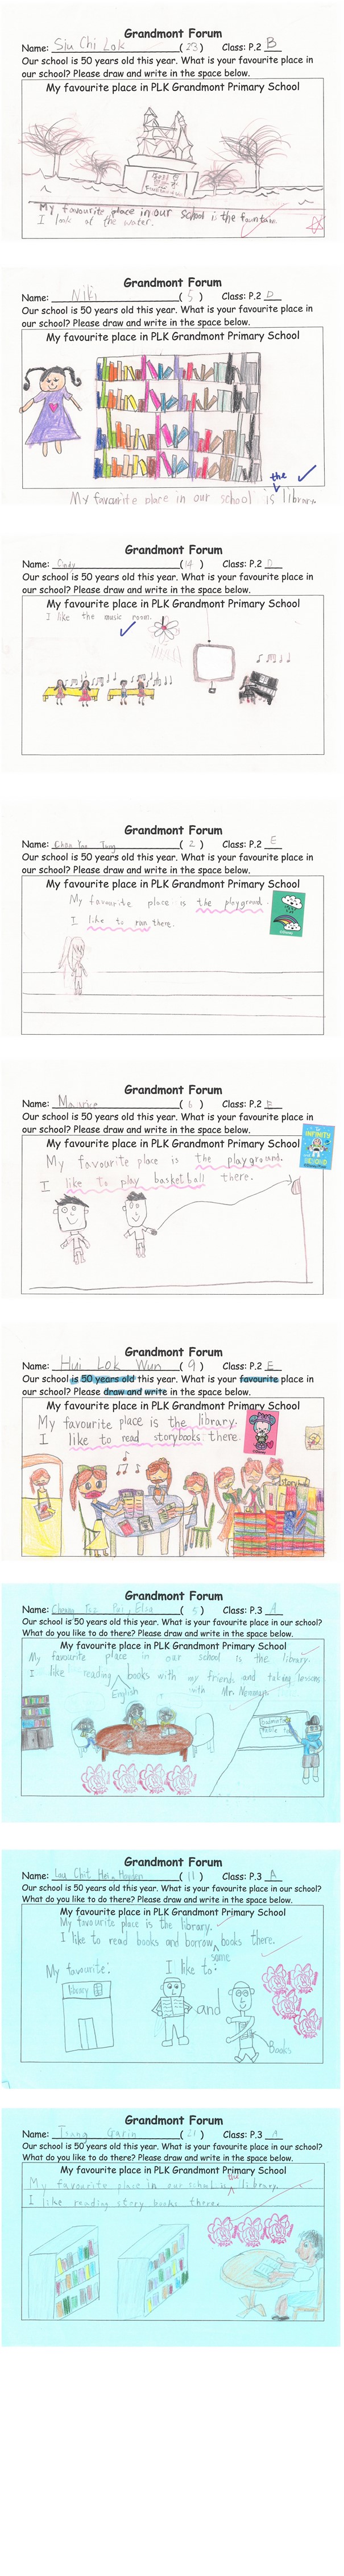 Grandmont Forum
Name: Siu Chi Lok (23) Class: P.2 B
Our school is 50 years old this year. What is your favourite place in
our school? Please draw and write in the space below.
My favourite place in PLK Grandmont Primary School
My favourite place in our school is the fountain.
I look at the water.
Grandmont Forum
Name: Niki (5) Class: P.2 D
Our school is 50 years old this year. What is your favourite place in
our school? Please draw and write in the space below.
My favourite place in PLK Grandmont Primary School
the
My favourite place in our school is library.
Grandmont Forum
Name: Cindy (14) Class: P.2 D
Our school is 50 years old this year. What is your favourite place in
our school? Please draw and write in the space below.
My favourite place in PLK Grandmont Primary School
I like the music room.
Grandmont Forum
Name: Chan Yau Tung (2) Class: P.2 E
Our school is 50 years old this year. What is your favourite place in
our school? Please draw and write in the space below.
My favourite place in PLK Grandmont Primary School
My favourite place is the playground.
I like to run there.
Grandmont Forum
Name: Maurice (6) Class: P.2 E
Our school is 50 years old this year. What is your favourite place in
our school? Please draw and write in the space below.
My favourite place in PLK Grandmont Primary School
TO INFINITY
BEYOND
My favourite place is the playground.
I like to play basketball there.
Grandmont Forum
Name: Hui Lok Wun (9) Class: P.2 E
Our school is 50 years old this year. What is your favourite place in
our school? Please draw and write in the space below.
My favourite place in PLK Grandmont Primary School
My favourite place is the library.
I like to read storybooks there.
Grandmont Forum
Name: Cheung Tsz Pui, Elsa (5) Class: P.3 A
Our school is 50 years old this year. What is your favourite place in our school?
What do you like to do there? Please draw and write in the space below.
My favourite place in PLK Grandmont Primary School
My favourite place in our school is the library.
I like reading books with my friends and taking lessons
English with Mr.
Grandmont Forum
Name: Lau Chit Hei, Hayden (11) Class: P.3 A
Our school is 50 years old this year. What is your favourite place in our school?
What do you like to do there? Please draw and write in the space below.
My favourite place in PLK Grandmont Primary School
My favourite place is the library.
I like to read books and borrow books there.
some
My favourite: I like to:
library
and
Books
Grandmont Forum
Name: Tsang Garin (21) Class: P.3 A
Our school is 50 years old this year. What is your favourite place in our school?
What do you like to do there? Please draw and write in the space below.
My favourite place in PLK Grandmont Primary School
the
My favourite place in our school is library.
I like reading story books there.